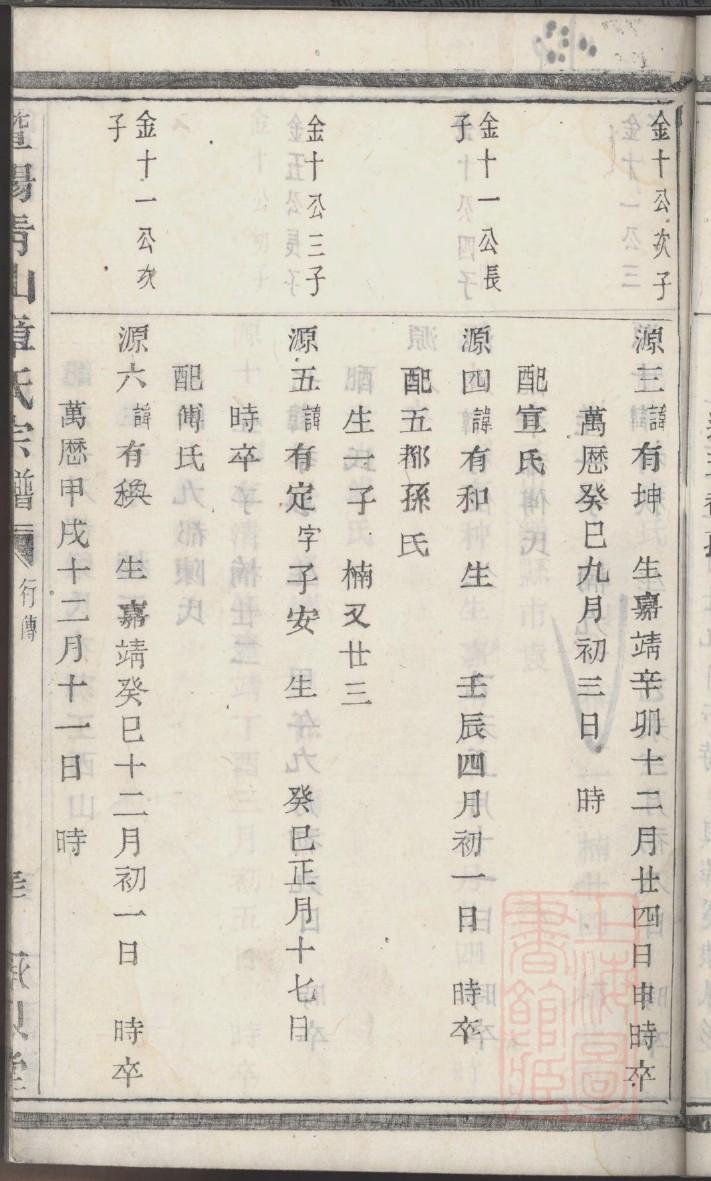 金十公次子
源三諱有坤　生嘉靖辛卯十二月廿四日申時卒
萬厯癸巳九月初三日　時
配宣氏
金十一公長
子
源四諱有和　生　壬辰四月初一日　時卒
配五都孫氏
生一子　楠又廿三
金十公三子
源五諱有定字子安　生　癸巳正月十七日
時卒
配傅氏
金十一公次
子
源六諱有　生嘉靖癸巳十二月初一日　時卒
萬厯甲戌十二月十一日　時
暨陽青山章氏宗譜　行傳
上海圖書館藏